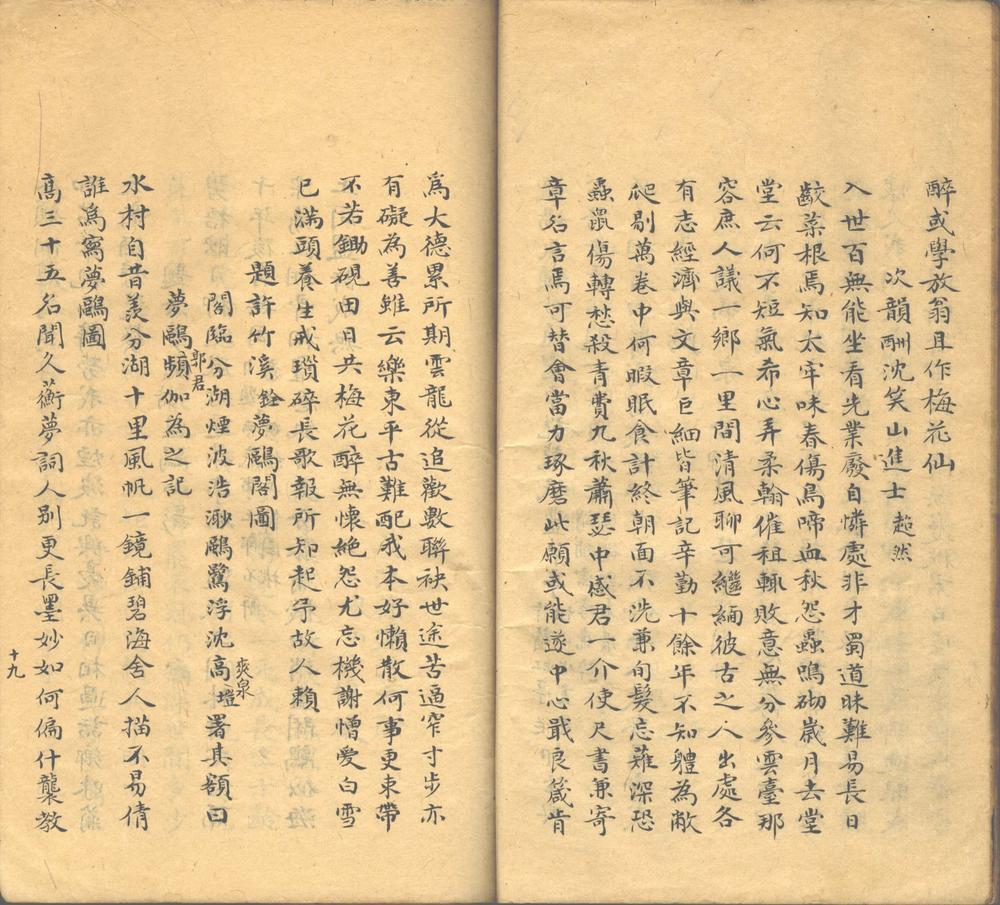 醉或學放翁且作梅花仙
次韻酬沈笑山進士超然
入世百無能坐看先業廢自憐處非才蜀道昧難易長日
齩菜根焉知太牢味春傷鳥啼血秋怨蟲鳴砌歲月去堂
堂云何不短氣希心弄柔翰催租輒敗意無分參雲臺那
容庶人議一鄉一里間清風聊可繼緬彼古之人出處各
有志經濟與文章巨細皆筆記辛勤十餘年不知軆為敝
爬剔萬卷中何暇眠食計終朝面不洗兼旬髮忘薙深恐
蟲鼠傷轉愁殺青費九秋蕭瑟中感君一介使尺書兼寄
章名言焉可替會當力琢磨此願或能遂中心戢良箴肯
爲大德累所期雲龍從追歡數聯袂世途苦逼窄寸步亦
有礙為善雖云樂東平古難配我本好懶散何事更束帶
不若鋤硯田日共梅花醉無懷絕怨尤忘機謝憎愛白雪
已滿頭養生戒瑣碎長歌報所知起予故人賴
題許竹溪銓夢鷗閣圖
閣臨分湖煙波浩渺鷗鷺浮沈高爽泉壒署其額曰
夢鷗郭君頻伽為之記
水村自昔羨分湖十里風帆一鏡鋪碧海舍人描不易倩
誰爲寫夢鷗圖
高三十五名聞久蘅夢詞人別更長墨妙如何偏什襲教
十九